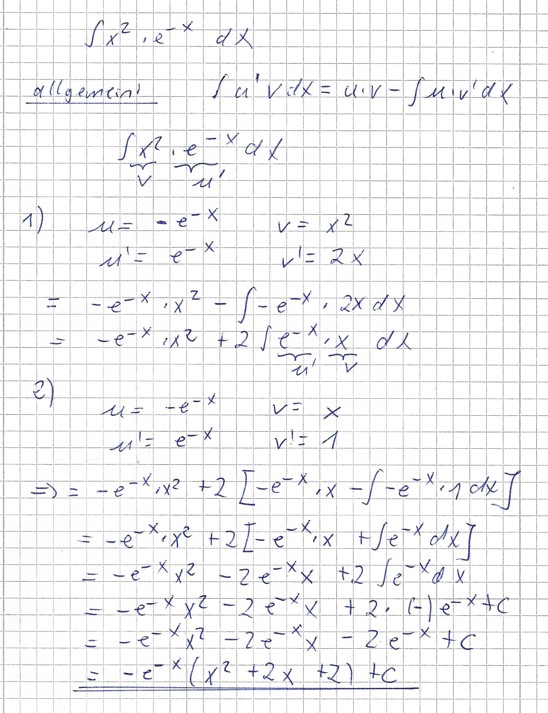 ∫x² · e^-x dx
allgemein: ∫u'v dx = u·v - ∫u·v' dx
∫x² · e^-x dx
v u'
1) u = -e^-x v = x²
u' = e^-x v' = 2x
= -e^-x · x² - ∫-e^-x · 2x dx
= -e^-x · x² + 2∫e^-x · x dx
u' v
2)
u = -e^-x v = x
u' = e^-x v' = 1
=> = -e^-x · x² + 2[-e^-x · x - ∫-e^-x · 1 dx]
= -e^-x · x² + 2[-e^-x · x + ∫e^-x dx]
= -e^-x x² - 2e^-x x + 2∫e^-x dx
= -e^-x x² - 2e^-x x + 2 · (-)e^-x + C
= -e^-x x² - 2e^-x x - 2e^-x + C
= -e^-x (x² + 2x + 2) + C